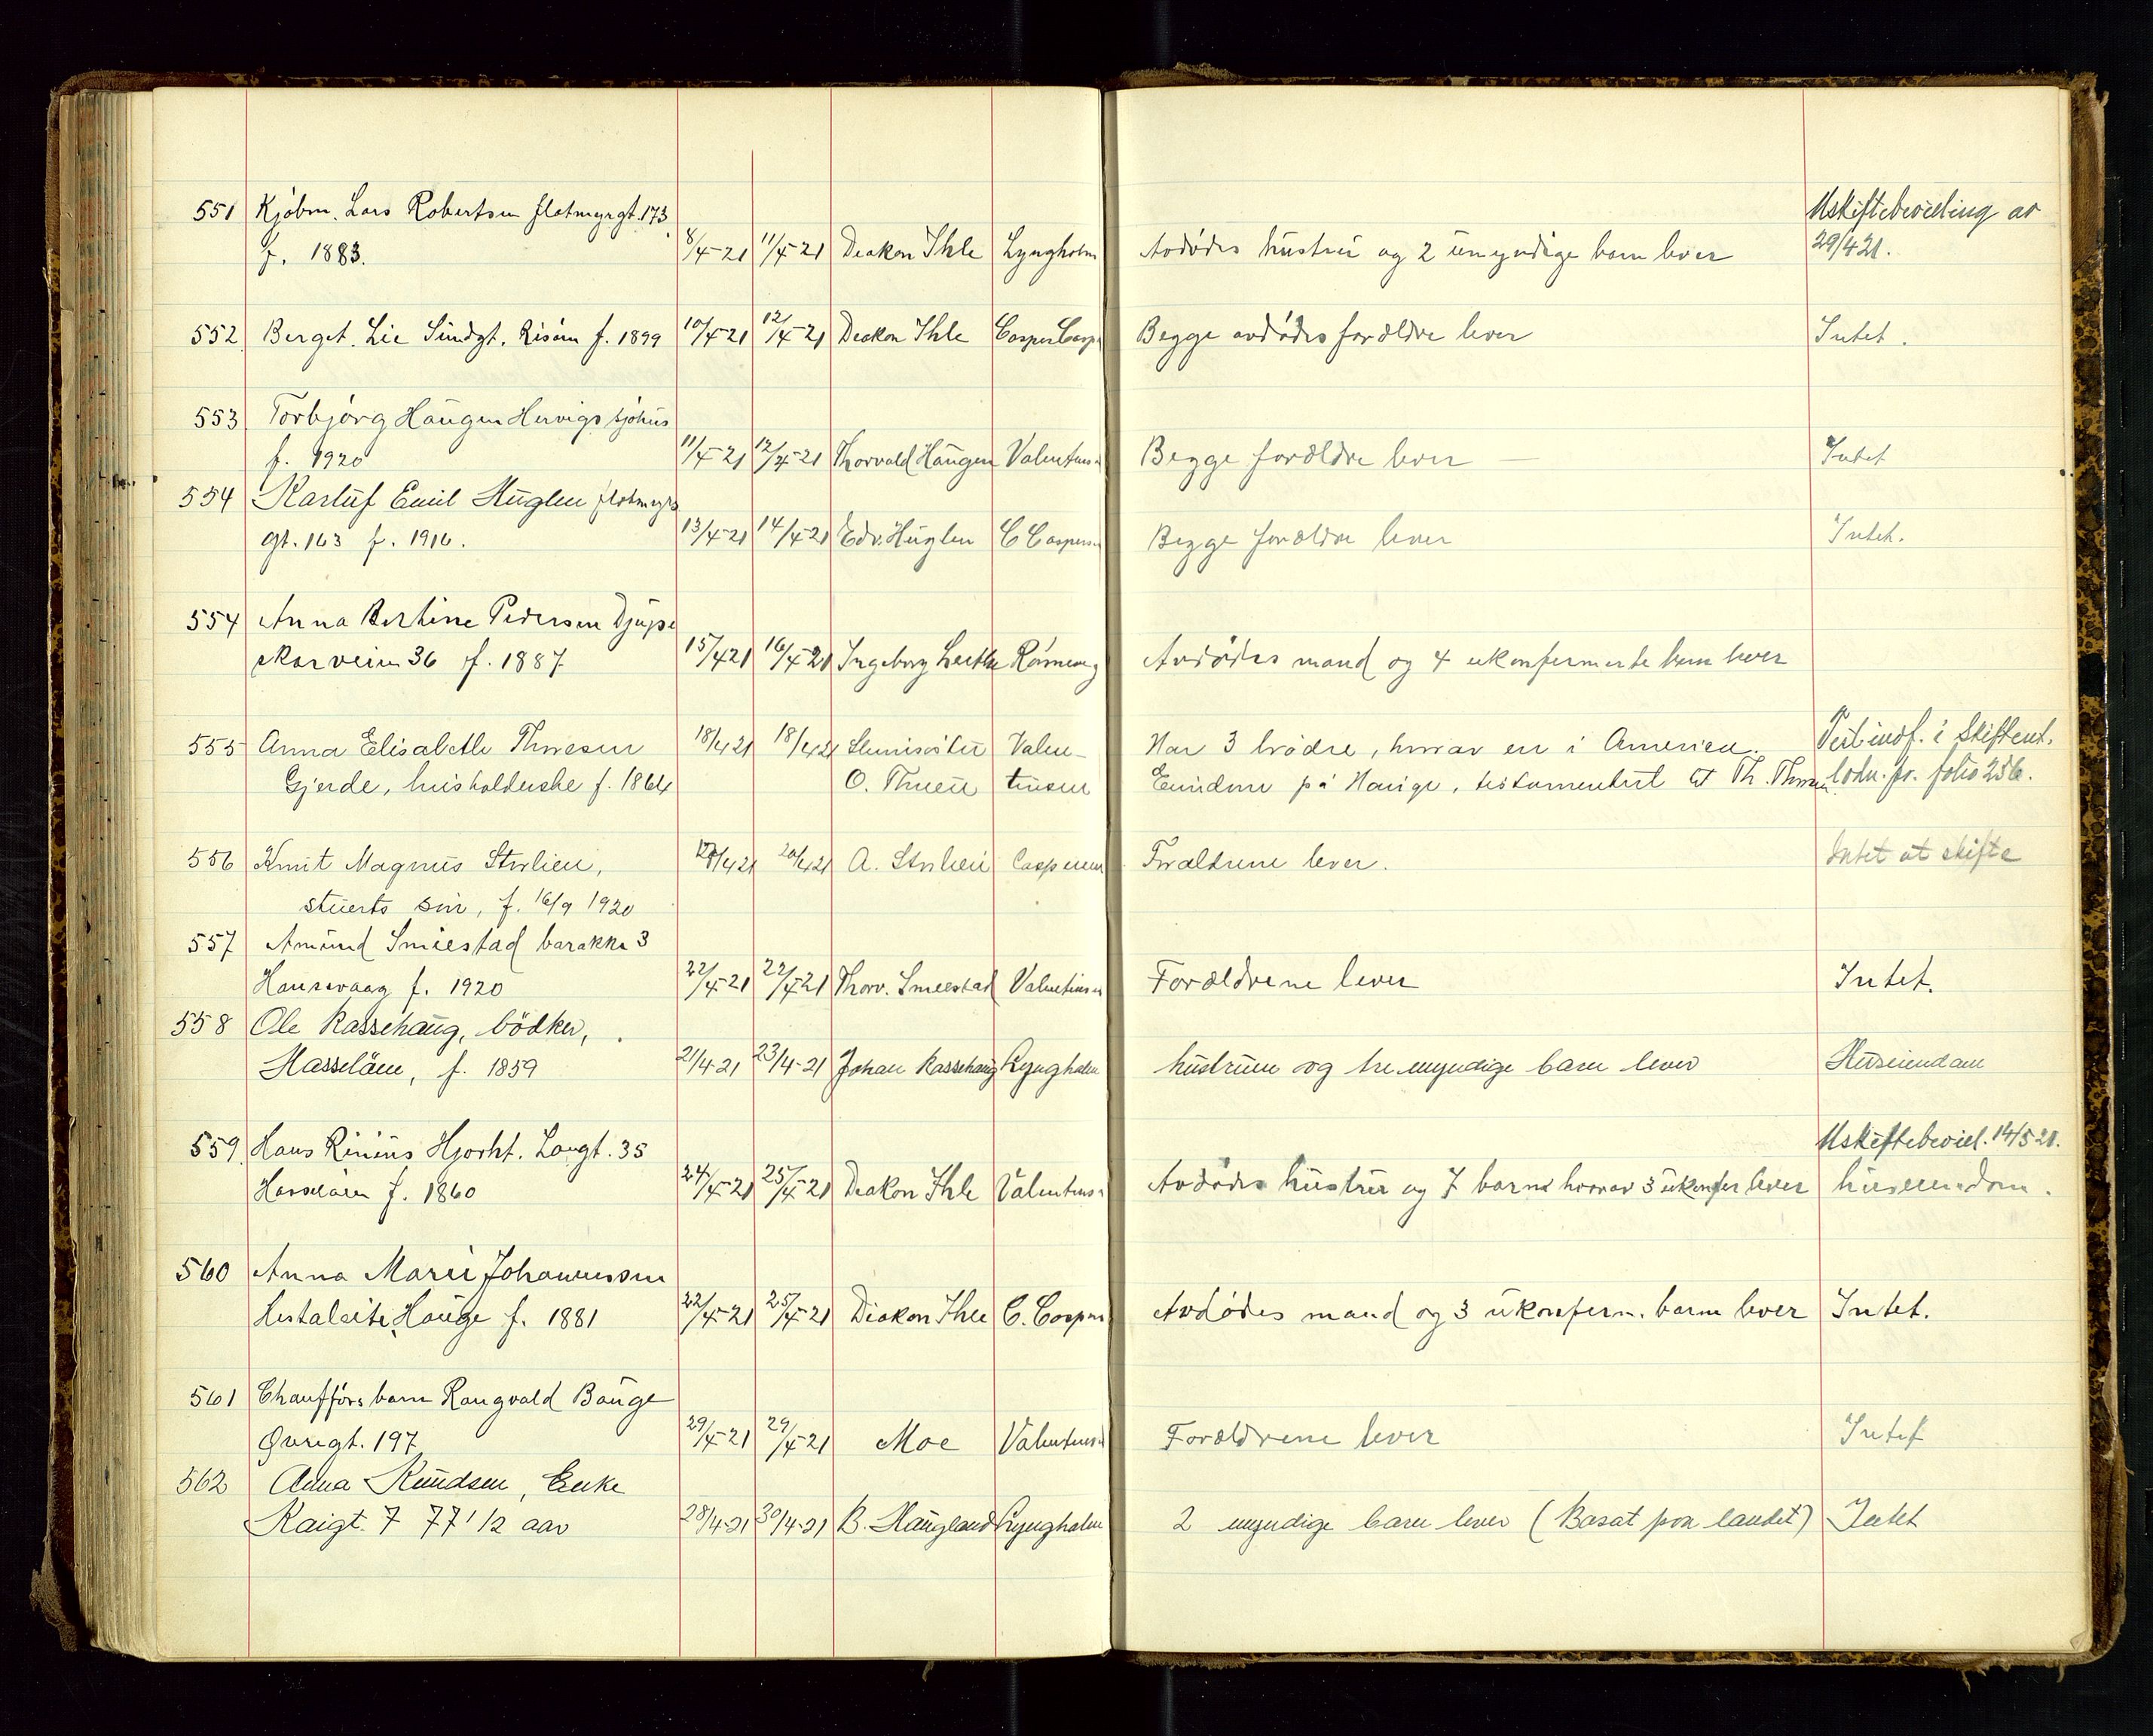 551 Kjöbm. Lars Robertsen flotmyrgt. 173 Uskiftebevilling av
f. 1883. 8/4-21 11/4-21 Deakon Ihle Lyngholm Avdødes hustru og 2 umyndige barn lever 29/4 21.
552 Berget. Lie Sundgt. Risöen f. 1899 10/4-21 12/4-21 Deakon Ihle Casper Casp Begge avdødes forældre lever Intet.
553 Torbjörg Haugen Hervigs sjøhus
f. 1920 11/4-21 12/4-21 Thorvald Haugen Valentins Begge forældre lever — Intet
554 Karluf Emil Huglen flotmyr
gt. 163 f. 1916. 13/4-21 14/4-21 Edv. Huglen C Caspers Begge forældre lever Intet.
554 Anna Bertine Pedersen Djupa
skarveien 36 f. 1887 15/4 21 16/4-21 Ingeborg Rönnevig Avdødes mand og 4 ukonfirmerte barn lever
555 Anna Elisabeth Thoresen 18/4 21 18/4 21 Valen- Har 3 brödre, hvorav en i Amerika. Test. indf. i Skiftent.
Gjerde, husholderske f. 1864 O. tinsen Eiendom på Hauge, testamentert til Th. folio 256.
556 Knut Magnus Stolien, 20/4 21 A. Stolien Caspersen Forældrene lever. Intet at skifte
stuerts sön, f. 16/9 1920
557 Amund Smeestad barakke 3
Hauvaag f. 1920 22/4-21 22/4-21 Thorv. Smeestad Valentins Forældrene lever Intet.
558 Ole Rassehaug, bödker,
Hasselöen, f. 1859 21/4-21 23/4-21 Johan Rassehaug Lyngholm hustruen og tre myndige barn lever Huseiendom
559 Hans Rinius Hjorht. Langt. 35 Uskiftebevil. 14/5 21.
Hasselöen f. 1860 24/4-21 25/4-21 Deakon Ihle Valentins Avdødes hustru og 7 barn hvorav 3 ukonfer lever huseiendom.
560 Anna Marie Johannessen
Hestaleite, Hauge f. 1881 22/4-21 25/4-21 Diakon Ihle C. Caspers Avdødes mand og 3 ukonferm. barn lever Intet.
561 Chauffórs barn Rangvald Bauge
Øvregt. 197 29/4-21 29/4-21 Moe Valentins Forældrene lever Intet
562 Anna Knudsen, Enke
Kaigt. 7 77 1/2 aar 28/4-21 30/4-21 B. Haugland Lyngholm 2 myndige barn lever (Bosat paa landet) Intet